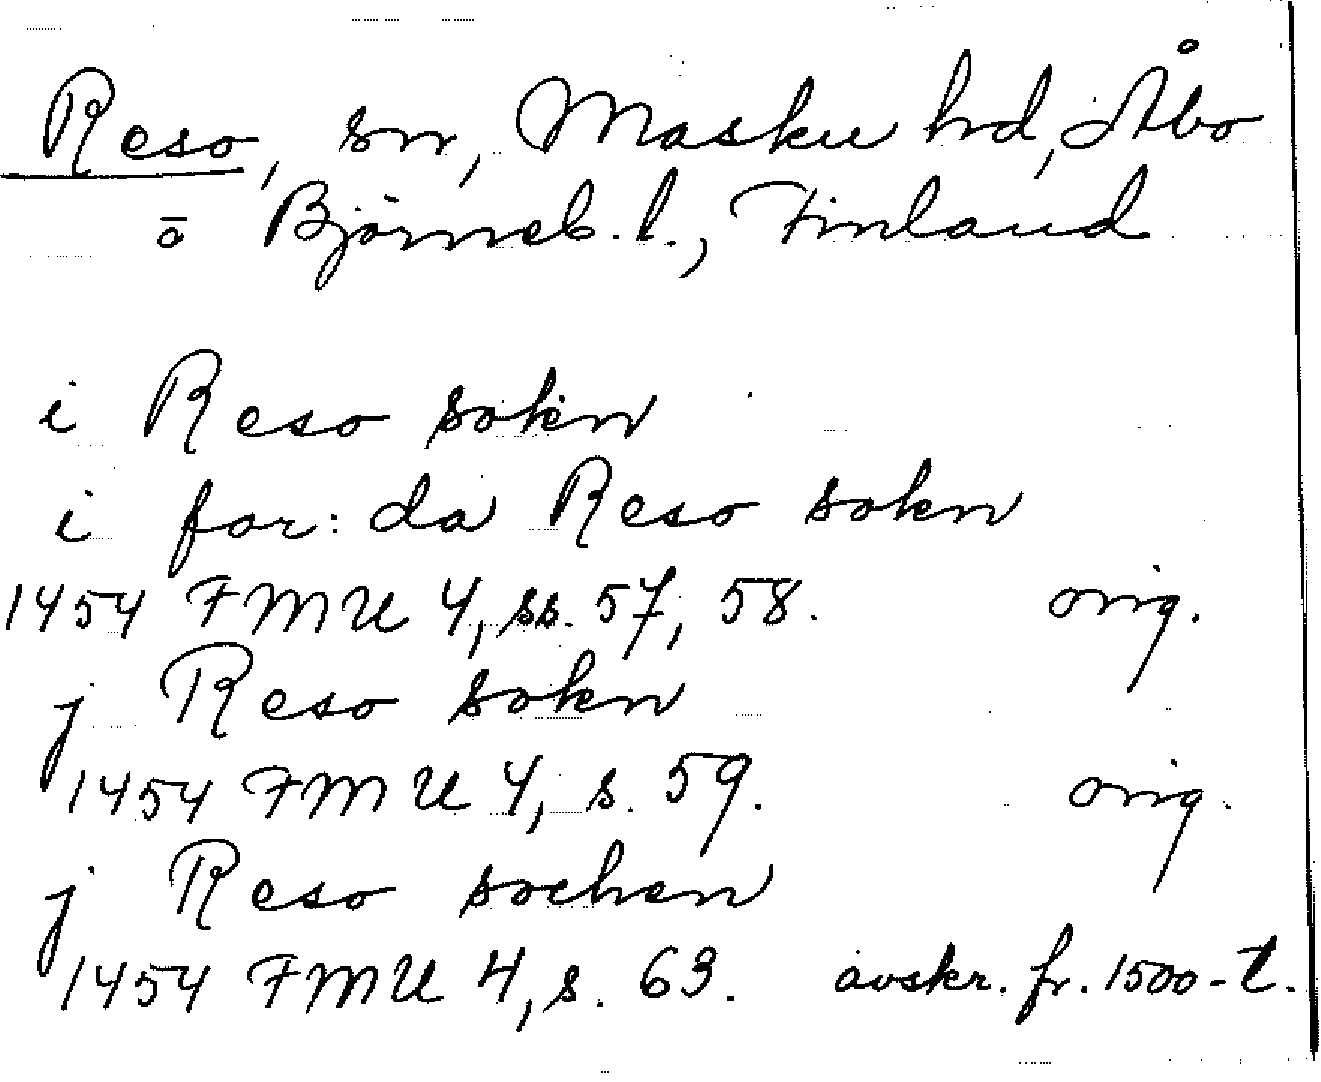 Reso, sn, Masku hd, Åbo
o̅ Björneb. l., Finland
i Reso sokn
i for: da Reso sokn
1454 FMU 4, ss. 57, 58. orig.
j Reso sokn
1454 FMU 4, s. 59. orig.
j Reso sochen
1454 FMU 4, s. 63. avskr. fr. 1500-t.